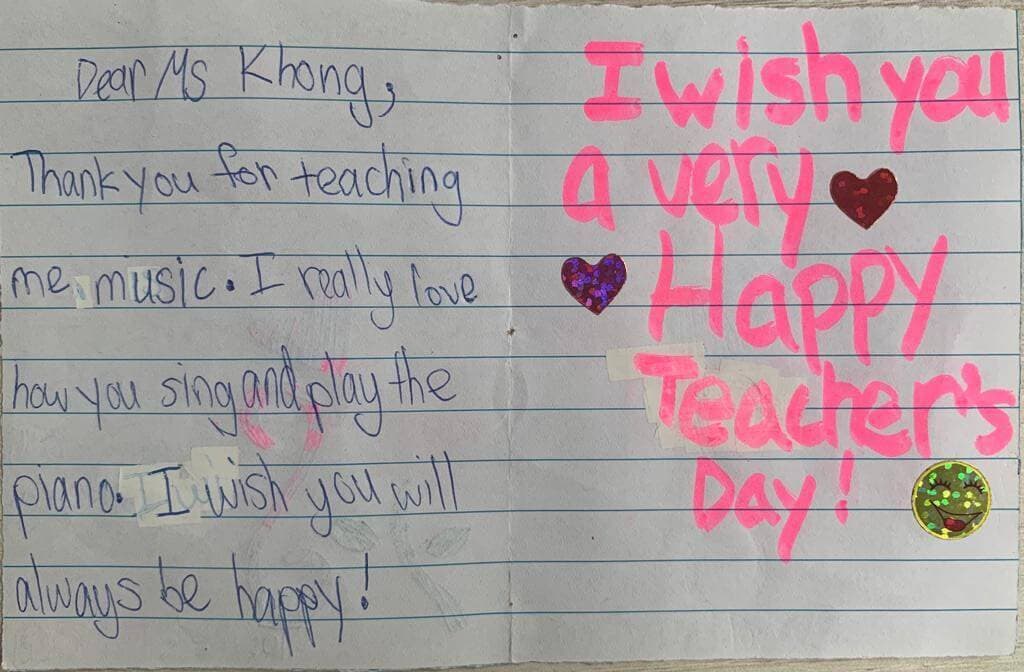 Dear Ms Khong,
Thank you for teaching
me music. I really love
how you sing and play the
piano. I wish you will
always be happy!
I wish you
a very
Happy
Teacher's
Day!